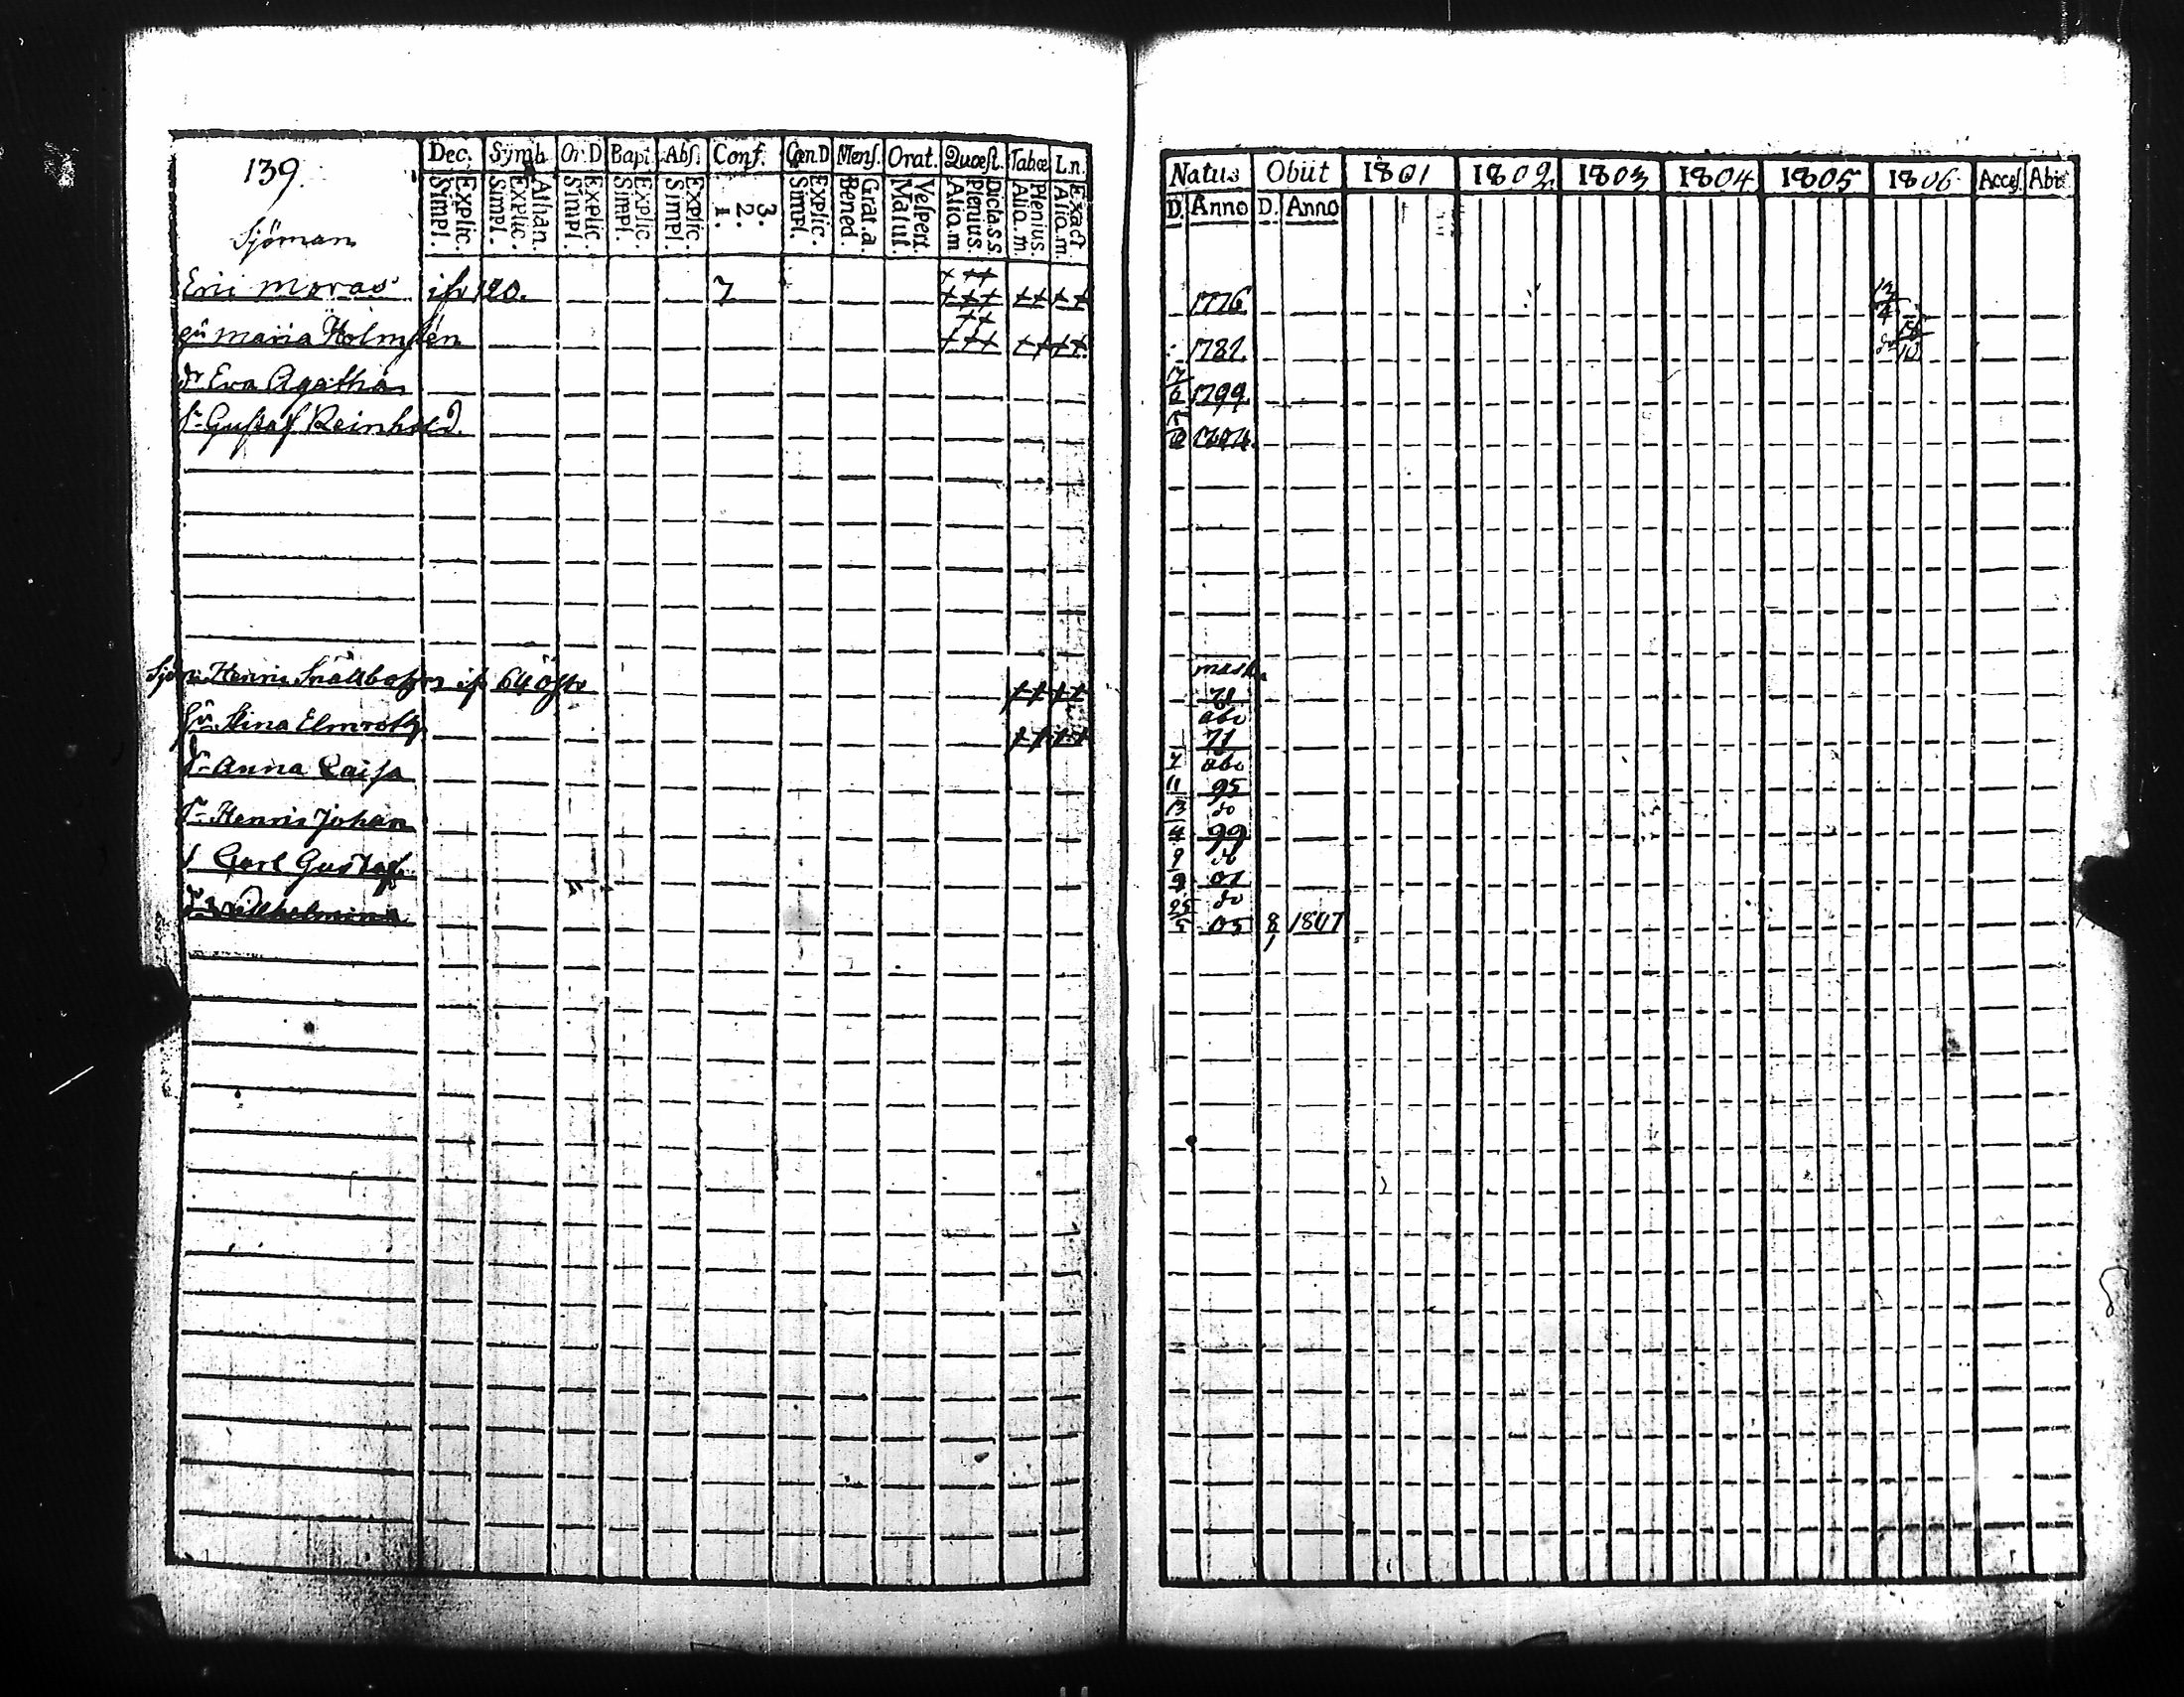 139.
Dec. Symb. Or.D Bapt. Abſ. Conf. Cœn.D Menſ. Orat. Quœſt. Tabœ L.n.
Explic. Simpl. Athan. Explic. Simpl. Explic Simpl. Explic. Simpl. Explic. Simpl. 3. 2. 1. Explic. Simpl. Grat.a. Bened. Veſpert. Matut. Dicta.s.s. Plenius. Aliq.m. Plenius. Aliq.m. Exact Aliq.m.
Natus Obiit 1801 1802 1803 1804 1805 1806 Acceſ. Abit
D. Anno D. Anno
Sjöman
Eric Moras ifr 120. 7 1776 13/4
hu Maria Holmstén 1782
dr Eva Agatha 17/6 1799
S- Gustaf Reinhold 1804
Henric if 64 öfre 71
hu Stina Elmroth abo 71
dr Anna Caisa 7/11 abo 95
S- Henric Johan 13/4 do 99
S Carl Gustaf 9/9 do 01
dr Wilhelmina 25/5 do 05 8/1 1807